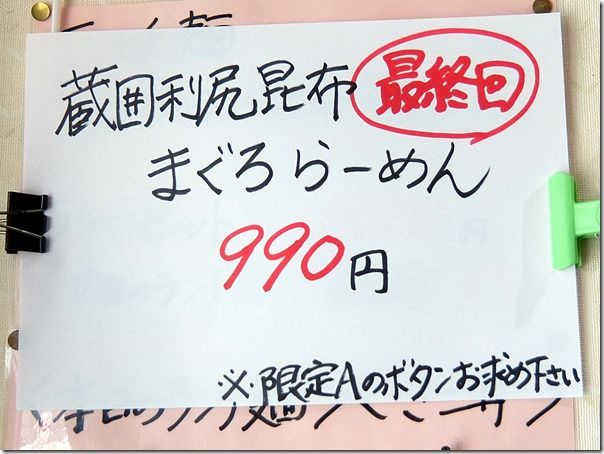 蔵囲利尻昆布 最終回
まぐろらーめん
990円
※限定Aのボタンお求め下さい